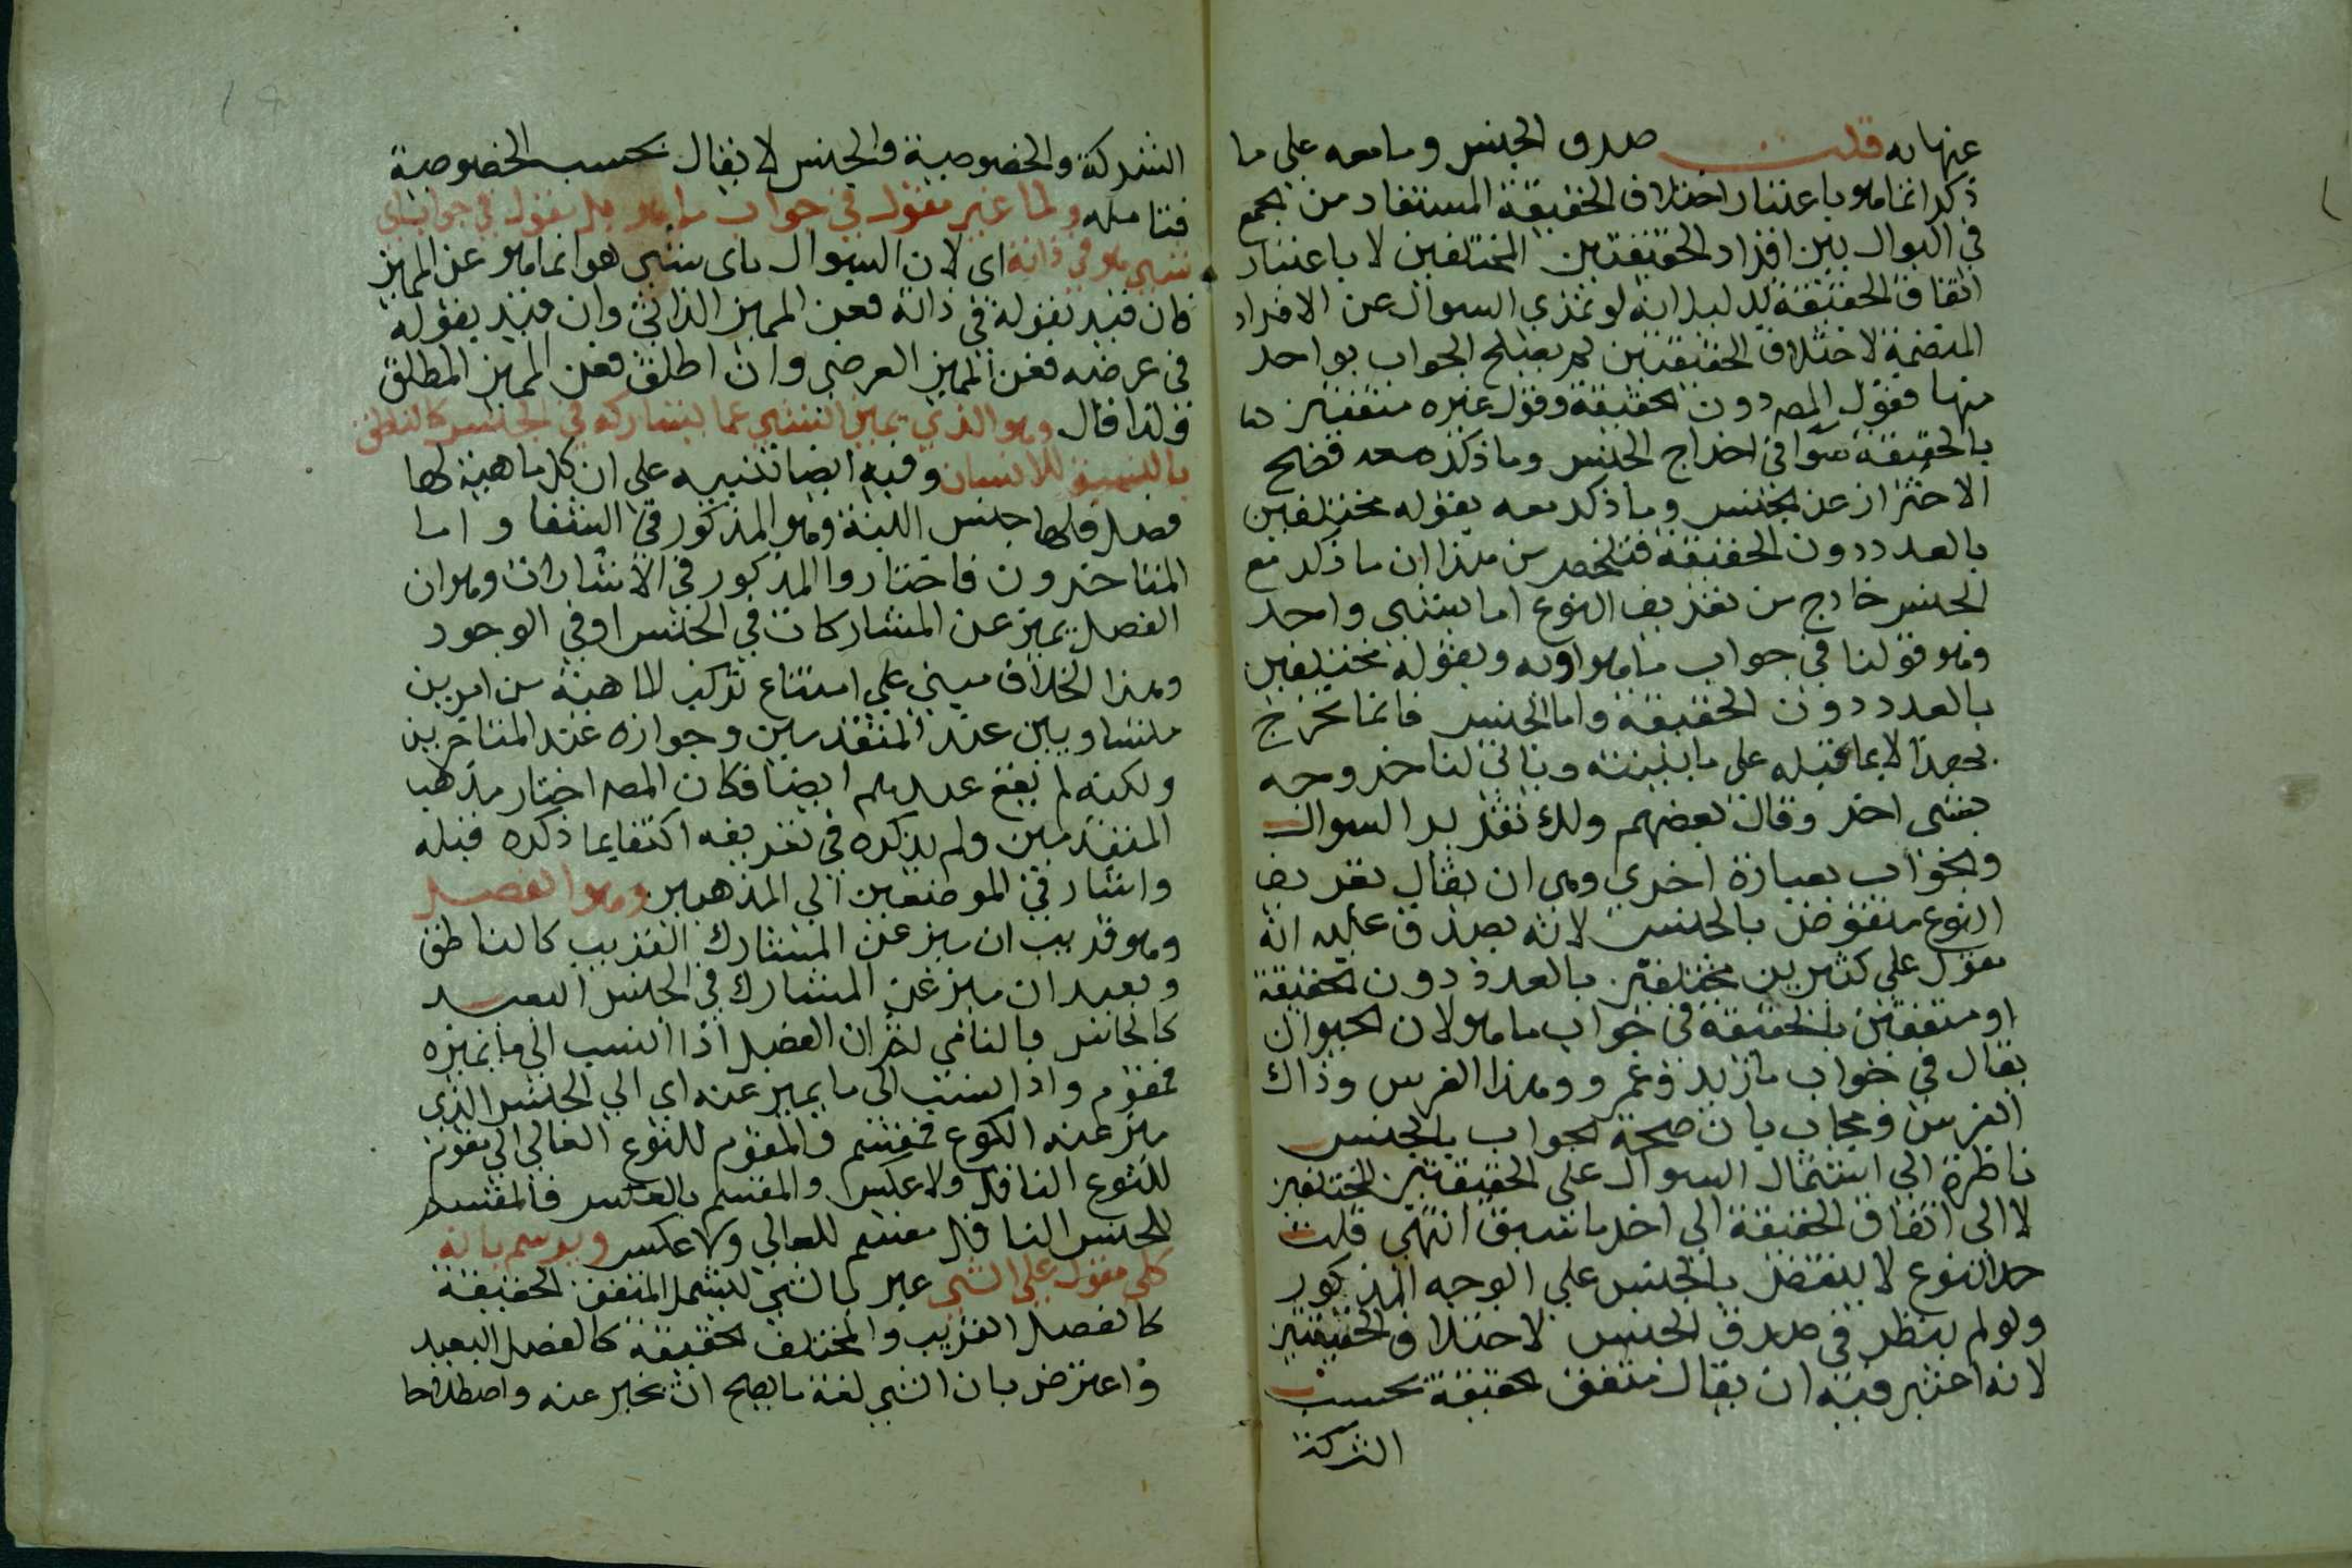 عنها به قلت صدق الجنس وما معه على ما
ذكر انما هو باعتبار اختلاف الحقيقة المستفاد من الجمع
في السوال بين افراد الحقيقتين المختلفين لا باعتبار
اتفاق الحقيقة بدليل انه لو عري السوال عن الافراد
المتضمنة لاختلاف الحقيقتين لم يصلح الجواب بواحد
منها فقول المصه دون الحقيقة وقول غيره متفقين
بالحقيقة سوا في اخراج الجنس وما ذكر معه فصح
الاحتراز عن الجنس وما ذكر معه بقوله مختلفين
بالعدد دون الحقيقة فتلخص من هذا ان ما ذكر مع
الجنس خارج من تعريف النوع اما بشي واحد
وهو قولنا في جواب ما هو او به وبقوله مختلفين
بالعدد دون الحقيقة واما الجنس فانما يخرج
بهذا لا بما قبله على ما بينته وياتي لنا خروجه
بشي اخر وقال بعضهم ولك تقرير السوال
والجواب بعبارة اخري وهي ان يقال تعريف
النوع منقوض بالجنس لانه يصدق عليه انه
مقول على كثيرين مختلفين بالعدد دون الحقيقة
او متفقين بالحقيقة في جواب ما هو لان الحيوان
يقال في جواب ما زيد وعمرو وهذا الفرس وذاك
الفرس ويجاب بان صحة الجواب بالجنس
ناظرة الي اشتمال السوال على الحقيقتين المختلفين
لا الي اتفاق الحقيقة الي اخر ما سبق انتهي قلت
حد النوع لا ينتقض بالجنس على الوجه المذكور
ولو لم ينظر في صدق الجنس لاختلاف الحقيقتين
لانه اعتبر فيه ان يقال متفق الحقيقة بحسب
الشركة
الشركة والخصوصية والجنس لا يقال بحسب الخصوصية
فتامله واما غير مقول في جواب ما هو بل مقول في جواب اي
شي هو في ذاته اي لان السوال باي شي هو انما هو عن المميز
فان قيد بقوله في ذاته فعن المميز الذاتي وان قيد بقوله
في عرضه فعن المميز العرضي وان اطلق فعن المميز المطلق
ولذا قال وهو الذي يميز الشي عما يشاركه في الجنس كالناطق
بالنسبة للانسان وفيه ايضا تنبيه على ان كل ماهية لها
فصل فلها جنس البتة وهو المذكور في الشفا واما
المتاخرون فاختاروا المذكور في الاشارات وهو ان
الفصل يميز عن المشاركات في الجنس او في الوجود
وهذا الخلاف مبني على امتناع تركب الماهية من امرين
متساويين عند المتقدمين وجوازه عند المتاخرين
ولكنه لم يقع عندهم ايضا فكان المصه اختار مذهب
المتقدمين ولم يذكره في تعريفه اكتفا بما ذكره قبله
واشار في الموضعين الي المذهبين وهو الفصل
وهو قريب ان ميز عن المشارك القريب كالناطق
وبعيد ان ميز عن المشارك في الجنس البعيد
كالحاس والنامي ثم ان الفصل اذا انسب الي ما يميزه
فمقوم واذا انسب الي ما يميز عنه اي الي الجنس الذي
ميز عنه النوع فمقسم والمقوم للنوع العالي مقوم
للنوع السافل ولا عكس والمقسم بالعكس فالمقسم
للجنس السافل مقسم للعالي ولا عكس ويرسم بانه
كلي مقول على الشي عبر بالشي ليشمل المتفق الحقيقة
كالفصل القريب والمختلف الحقيقة كالفصل البعيد
واعترض بان الشي لغة ما يصح ان يخبر عنه واصطلاحا